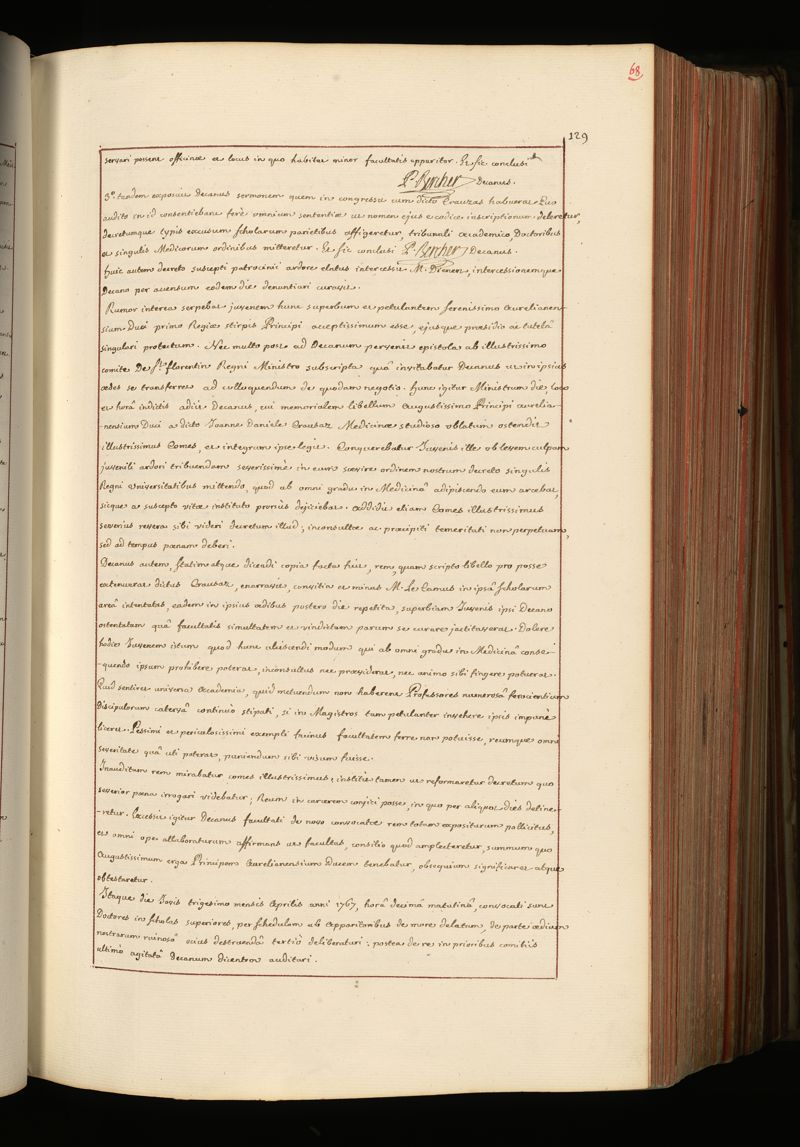 68
129
servari possent officinæ et locus in quo habitat minor facultatis apparitor. Et sic conclusi
P. Bercher Decanus.
3º. tandem exposuit decanus sermonem quem in congressu cum dicto Crauzas habuerat. Quo
audito in id consentiebant ferè omnium sententiæ ut nomen ejus e codice inscriptionum deleretur,
decretumque typis excusum scholarum parietibus affigeretur, tribunali academico, Doctoribus
et singulis Medicorum ordinibus mitteretur. Et sic conclusi P. Bercher Decanus.
huic autem decreto suscepti patrocinii ardore elatus intercessit M. Dienert, intercessionemque
Decano per aversum eodem die denuntiari curavit.
Rumor interea serpebat juvenem hunc superbum et petulantem serenissimo Aurelianen-
sium Duci primo Regiæ stirpis Principi acceptissimum esse, ejusque præsidio ac tutelâ
singulari protectum. Nec multo post ad Decanum pervenit epistola ab illustrissimo
comite De St. florentin Regni Ministro subscripta quâ invitabatur Decanus ut in ipsius
ædes se transferret ad colloquendum de quodam negotio. hunc igitur Ministrum die, loco
et horâ indictis adiit Decanus, cui memorialem libellum Augustissimo Principi Aurelia-
nensium Duci a dicto Joanne Daniele Crausaz Medicinæ studioso oblatum ostendit
illustrissimus Comes, et integrum ipse legit. Conquerebatur Juvenis ille ob levem culpam
juvenili ardori tribuendam severissimè in eum sævire ordinem nostrum decreto singulis
Regni Universitatibus mittendo, quod ab omni gradu in Medicinâ adipiscendo eum arcebat,
sicque a suscepto vitæ instituto prorsùs dejiciebat. Addidit etiam Comes illustrissimus
severius revera sibi videri decretum illud, inconsultæ ac præcipiti temeritati non perpetuam,
sed ad tempus pœnam deberi.
Decanus autem, statim atque dicendi copia facta fuit, rem, quam scripto libello pro posse
extenuerat dictus Crausaz, enarravit, convitia et minas M. Le Camus in ipsâ scholarum
areâ intentatas, eadem in ipsius ædibus postero die repetita, superbiam Juvenis ipsi Decano
ostentatam quâ facultatis simultatem et vindictam parum se curare jactitaverat. Dolere
hodie Juvenem istum quod hunc ulciscendi modum qui ab omni gradu in Medicinâ conse-
-quendo ipsum prohibere poterat, inconsultus nec præviderat, nec animo sibi fingere potuerat.
Quid sentiret universa Academia, quid metuendum non haberent Professores numerosâ ferocientium
Discipulorum catervâ continuò stipati, si in Magistros tam petulanter invehere ipsis impunè
liceret. Pessimi et periculosissimi exempli facinus facultatem ferre non potuisse, reumque omni
severitate quâ uti poterat, puniendum sibi visum fuisse.
Inauditam rem mirabatur comes illustrissimus; institit tamen ut reformaretur decretum quo
severior pœna irrogari videbatur; Reum in carcerem conjici posse, in quo per aliquot dies detine-
-retur. Excessit igitur Decanus facultati de novo convocatæ rem totam expositurum pollicitus,
et omni ope allaboraturum affirmans ut facultas, consilio quod amplecteretur, summum quo
Augustissimum erga Principem Aurelianensium Ducem tenebatur, obsequium significaret atque
obtestaretur.
Itaque die Jovis trigesimo mensis Aprilis anni 1767, horâ decimâ matutinâ, convocati sunt
Doctores in scholas superiores, per schedulam ab Apparitoribus de more delatam, de parte ædium
nostrarum ruinosâ ocius destruendâ tertiò deliberaturi: postea de re in prioribus comitiis
ultimò agitatâ decanum dicentem audituri.